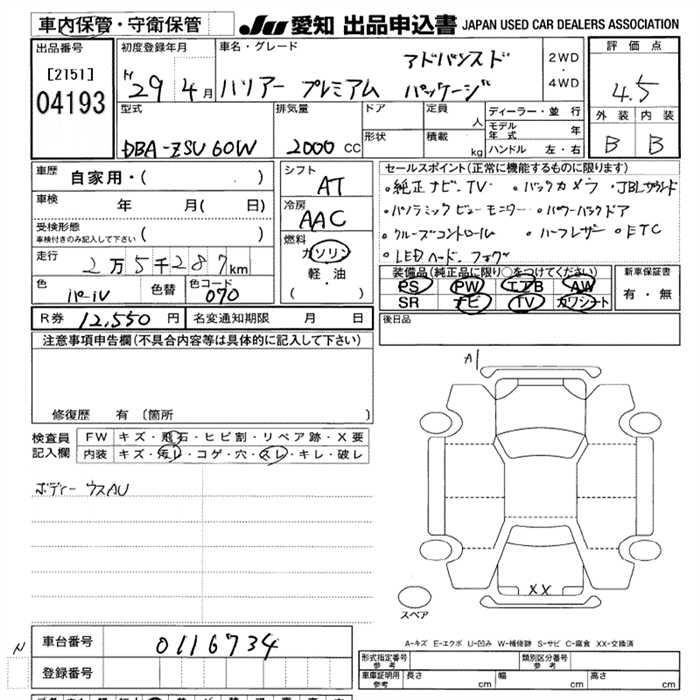 車内保管・守衛保管
JU 愛知 出品申込書 JAPAN USED CAR DEALERS ASSOCIATION
出品番号
[2151]
04193
初度登録年月
H 29 4月
車名・グレード
ハリアー プレミアム
アドバンスド
パッケージ
2WD
4WD
評価点
4.5
外装 内装
B B
型式
DBA-ZSU60W
排気量
2000 CC
ドア
形状
定員
人
積載
kg
ディーラー・並行
モデル年式 年
ハンドル 左・右
車歴
自家用・( )
車検
年 月( 日)
受検形態
車検付きのみ記入して下さい ( )
走行
2万5千287km
色
パールV
色替
色コード
070
シフト
AT
冷房
AAC
燃料
ガソリン
軽油
( )
セールスポイント(正常に機能するものに限ります)
・純正ナビ・TV ・バックカメラ ・JBLサウンド
・パノラミックビューモニター ・パワーバックドア
・クルーズコントロール ・ハーフレザー ・ETC
・LEDヘッド、フォグ
装備品(純正品に限り○をつけてください)
PS PW エアB AW
SR ナビ TV カワシート
新車保証書
有・無
R券 12,550円
名変通知期限 月 日
後日品
注意事項申告欄(不具合内容等は具体的に記入して下さい)
修復歴 有〔箇所 〕
検査員記入欄
FW キズ・飛石・ヒビ割・リペア跡・X要
内装 キズ・汚レ・コゲ・穴・スレ・キレ・破レ
ボディーウスAU
A1
XX
スペア
A-キズ E-エクボ U-凹み W-補修跡 S-サビ C-腐食 XX-交換済
N
車台番号 0116734
登録番号
形式指定番号 参考
類別区分番号 参考
車庫証明用 参考 長さ cm 幅 cm 高さ cm